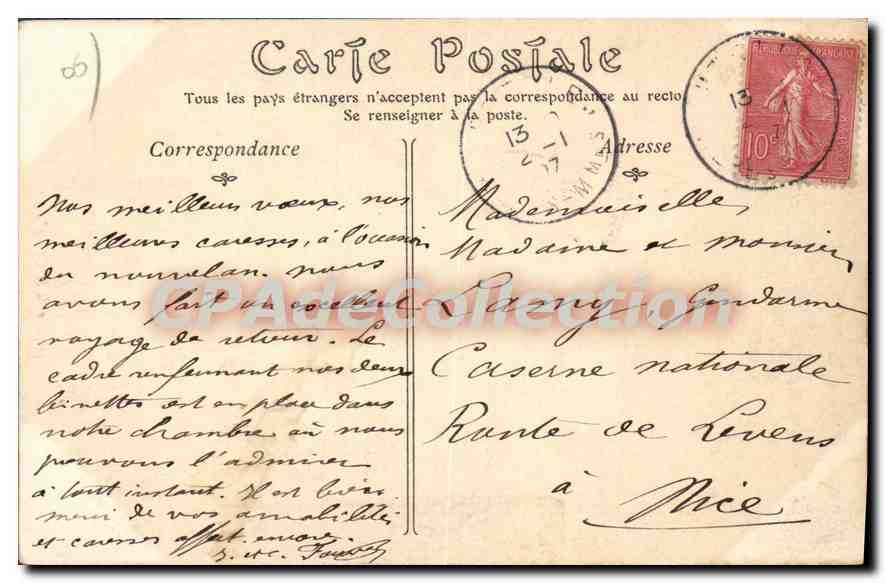 Carte Postale
Tous les pays étrangers n'acceptent pas la correspondance au recto
Se renseigner à la poste.
Correspondance
Nos meilleurs vœux, nos
meilleures caresses, à l'occasion
du nouvel an. nous
avons fait un excellent
voyage de retour. Le
cadre renfermant nos deux
binettes est en place dans
notre chambre où nous
pouvons l'admirer
à tout instant. Il est
merci de vos amabilités
et caresses affect. encore.
Adresse
Mesdemoiselles,
Madame et monsieur
Lamy, Gendarme
Caserne nationale
Route de Levens
à Nice
13
2-1
07
13
REPUBLIQUE FRANÇAISE
10c
CPAdeCollection